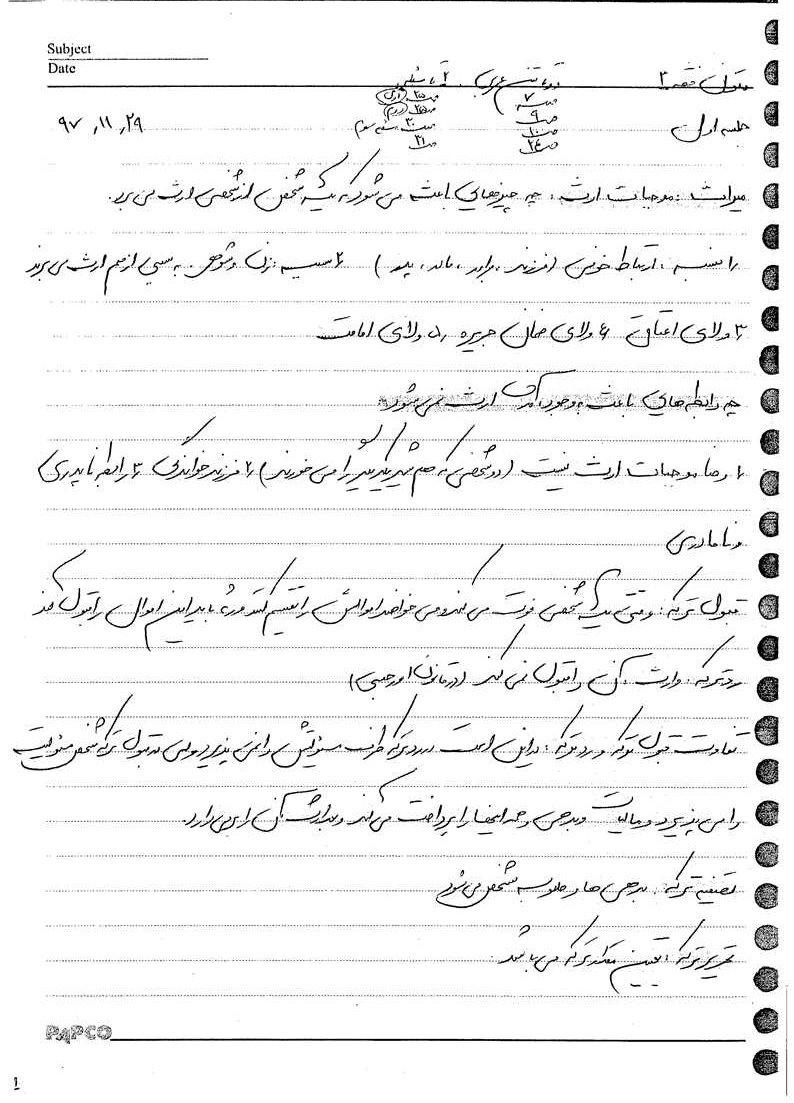 Subject
Date
متون فقه ۲ قرائت متن عربی
ص ۷ ص ۲۵ (اول)
ص ۹ ص ۲۵ (دوم)
جلسه اول ص ۱۰ ص ۳۰ سوم ۹۷, ۱۱, ۲۹
ص ۲۴ ص ۳۱
میراث : موجبات ارث : چه چیزهایی باعث می شود که یک شخص از شخصی ارث می برد.
۱ نسب : ارتباط خونی (فرزند، برادر، مادر، پدر) ۲ سبب : زن و شوهر به سببی از هم ارث می برند
۳ ولای اعتاق ۴ ولای ضمان جریره ۵ ولای امامت
چه رابطه هایی باعث بوجود آمدن ارث نمی شود
۱ رضاع موجبات ارث نیست (دو شخصی که هم شیر یکدیگر را می خورند) ۲ فرزند خواندگی ۳ رابطه ناپدری
و نامادری
قبول ترکه : وقتی یک شخصی فوت می کند و می خواهد اموالش را تقسیم کند ورثه باید این اموال را قبول کند
رد ترکه : وارث آن را قبول نمی کند (در قانون امور حسبی)
تفاوت قبول ترکه و رد ترکه : در این است در رد ترکه طرف مسئولیتش را نمی پذیرد ولی در قبول ترکه شخص مسئولیت
را می پذیرد و مالیات و بدهی و همه اینها را پرداخت می کند و مابقی آن را برمی دارد.
تصفیه ترکه : بدهی ها و شخص می شود
تحریر ترکه : تعیین مقدار ترکه می باشد
PAPCO
1